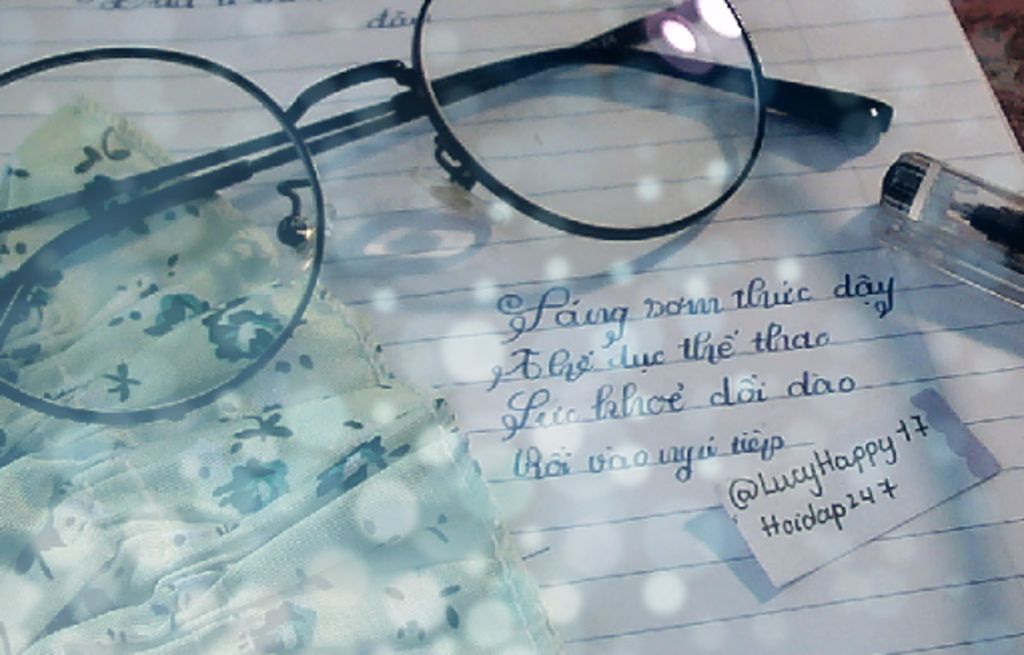 Sáng sớm thức dậy
Thể dục thể thao
Sức khoẻ dồi dào
Rồi vào ngủ tiếp
@LucyHappy17
Hoidap247